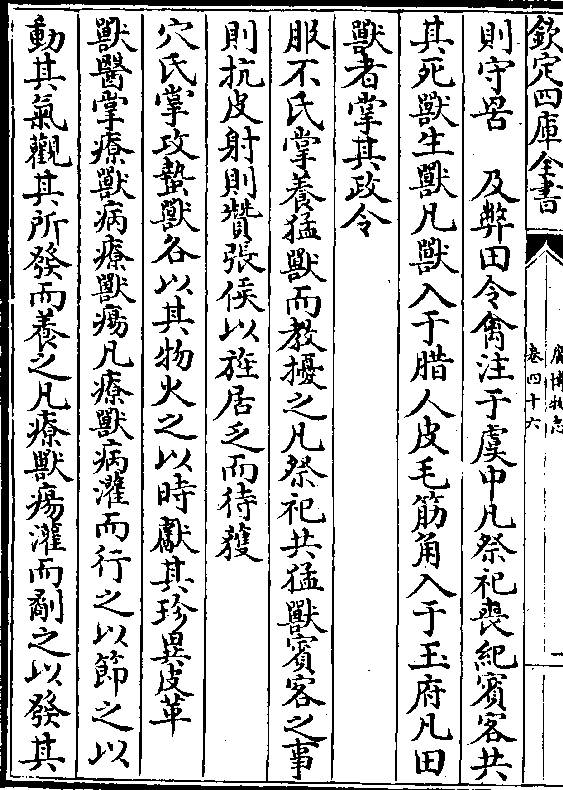 欽定四庫全書
廣博物志
卷四十六
一
則守罟 及弊田令禽注于虞中凡祭祀喪紀賓客共
其死獸生獸凡獸入于腊人皮毛筋角入于玉府凡田
獸者掌其政令
服不氏掌養猛獸而教擾之凡祭祀共猛獸賓客之事
則抗皮射則贊張侯以旌居乏而待獲
穴氏掌攻蟄獸各以其物火之以時獻其珍異皮革
獸醫掌療獸病療獸瘍凡療獸病灌而行之以節之以
動其氣觀其所發而養之凡療獸瘍灌而劀之以發其